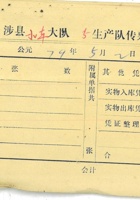 涉县 大队 5 生产队传
公元 79年5月2日
张 数
附属单据共
其他凭
实物入库凭
实物出库凭
凭证整理
张
会计